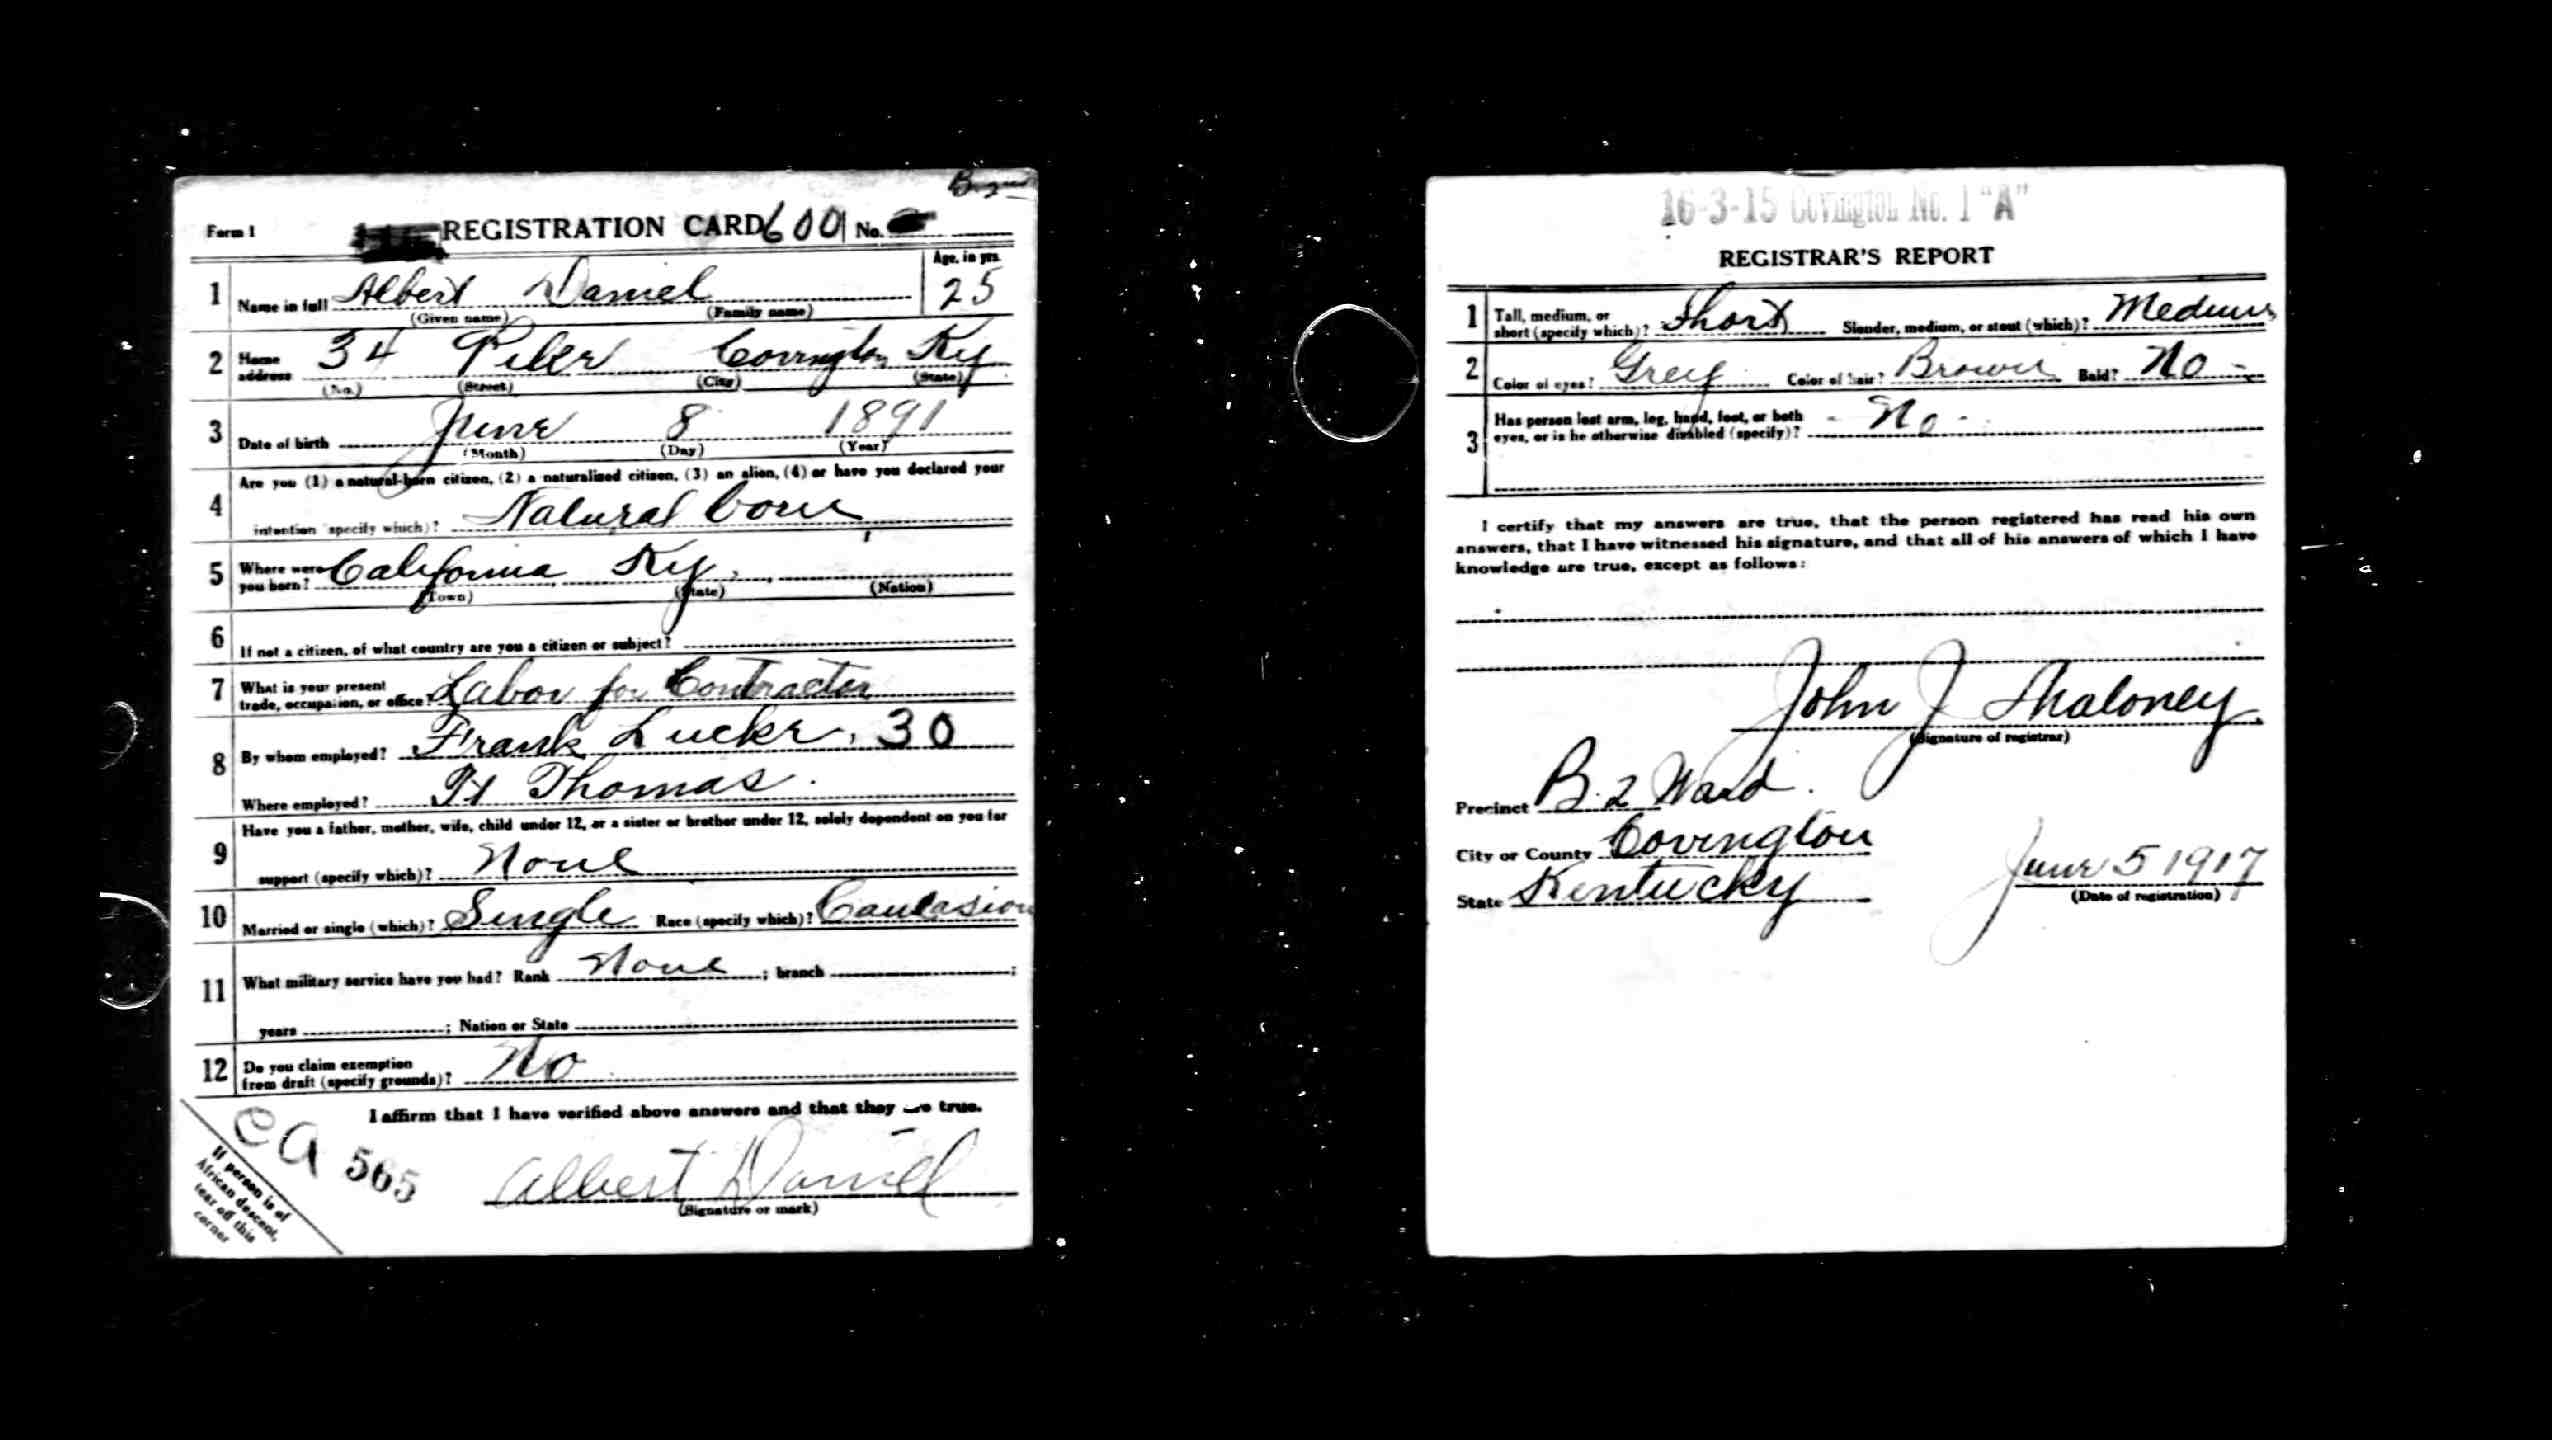 Form 1 REGISTRATION CARD 600 No.
1 Name in full Albert Daniel Age, in yrs. 25
(Given name) (Family name)
2 Home address 34 Covington Ky
(No.) (Street) (City) (State)
3 Date of birth June 8 1891
(Month) (Day) (Year)
Are you (1) a natural-born citizen, (2) a naturalized citizen, (3) an alien, (4) or have you declared your
4 intention (specify which)? Natural born
5 Where were you born? California Ky,
(Town) (State) (Nation)
6 If not a citizen, of what country are you a citizen or subject?
7 What is your present trade, occupation, or office? Labor for Contractor
8 By whom employed? Frank 30
Where employed? Ft Thomas.
Have you a father, mother, wife, child under 12, or a sister or brother under 12, solely dependent on you for
9 support (specify which)? None
10 Married or single (which)? Single Race (specify which)? Caucasion
11 What military service have you had? Rank None; branch ;
years ; Nation or State
12 Do you claim exemption from draft (specify grounds)? No
I affirm that I have verified above answers and that they are true.
Albert Daniel
(Signature or mark)
565
If person is of
African descent,
tear off this
corner
16-3-15 Covington No. 1 "A"
REGISTRAR'S REPORT
1 Tall, medium, or short (specify which)? Short Slender, medium, or stout (which)? Medium
2 Color of eyes? Grey Color of hair? Brown Bald? No -
3 Has person lost arm, leg, hand, foot, or both
eyes, or is he otherwise disabled (specify)? - No -
I certify that my answers are true, that the person registered has read his own
answers, that I have witnessed his signature, and that all of his answers of which I have
knowledge are true, except as follows:
John J Maloney
(Signature of registrar)
Precinct B. 2 Ward.
City or County Covington
State Kentucky June 5 1917
(Date of registration)